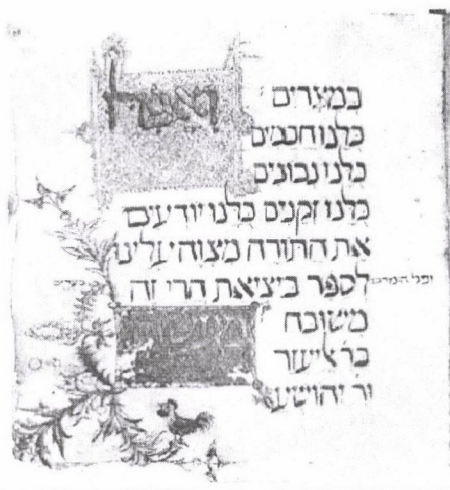 במצרים
כלנו חכמים
כלנו נבונים
כלנו זקנים כלנו יודעים
את התורה מצוה עלינו
לספר ביציאת הרי זה
משובח מעשה
בר אליעזר
ור יהושע